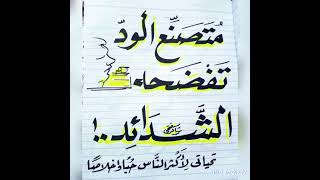 مُتَصَنِّع الودّ
تَفْضَحه
الشَّدَائِد..!
تحياتي لأكثر النَّاس حُبًا وإخلاصًا